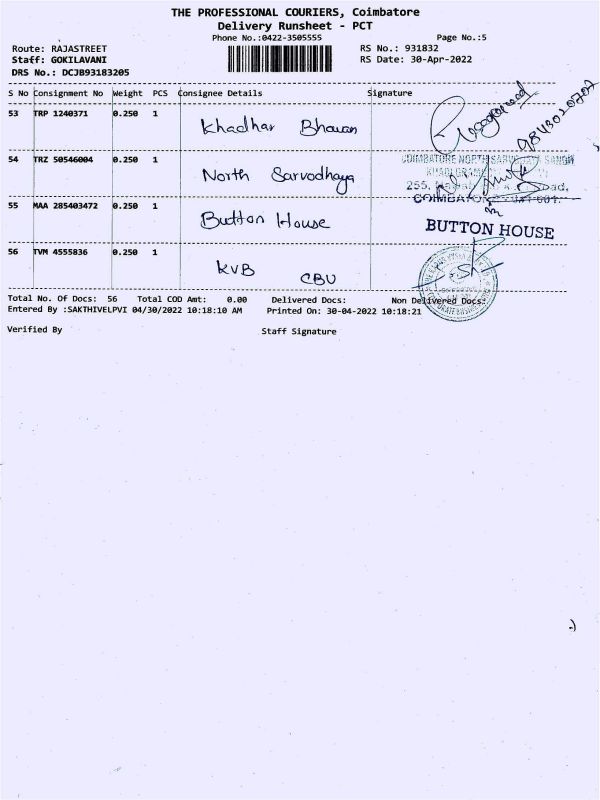 THE PROFESSIONAL COURIERS, Coimbatore
Delivery Runsheet - PCT
Phone No.:0422-3505555 Page No.:5
Route: RAJASTREET RS No.: 931832
Staff: GOKILAVANI RS Date: 30-Apr-2022
DRS No.: DCJB93183205
S No Consignment No Weight PCS Consignee Details Signature
53 TRP 1240371 0.250 1 Khadhar Bhavan
54 TRZ 50546004 0.250 1 North Sarvodhaya
COIMBATORE NORTH
255,
COIMBATORE
55 MAA 285403472 0.250 1 Button House
BUTTON HOUSE
56 TVM 4555836 0.250 1 KVB CBU
Total No. Of Docs: 56 Total COD Amt: 0.00 Delivered Docs: Non Delivered Docs:
Entered By :SAKTHIVELPVI 04/30/2022 10:18:10 AM Printed On: 30-04-2022 10:18:21
Verified By Staff Signature